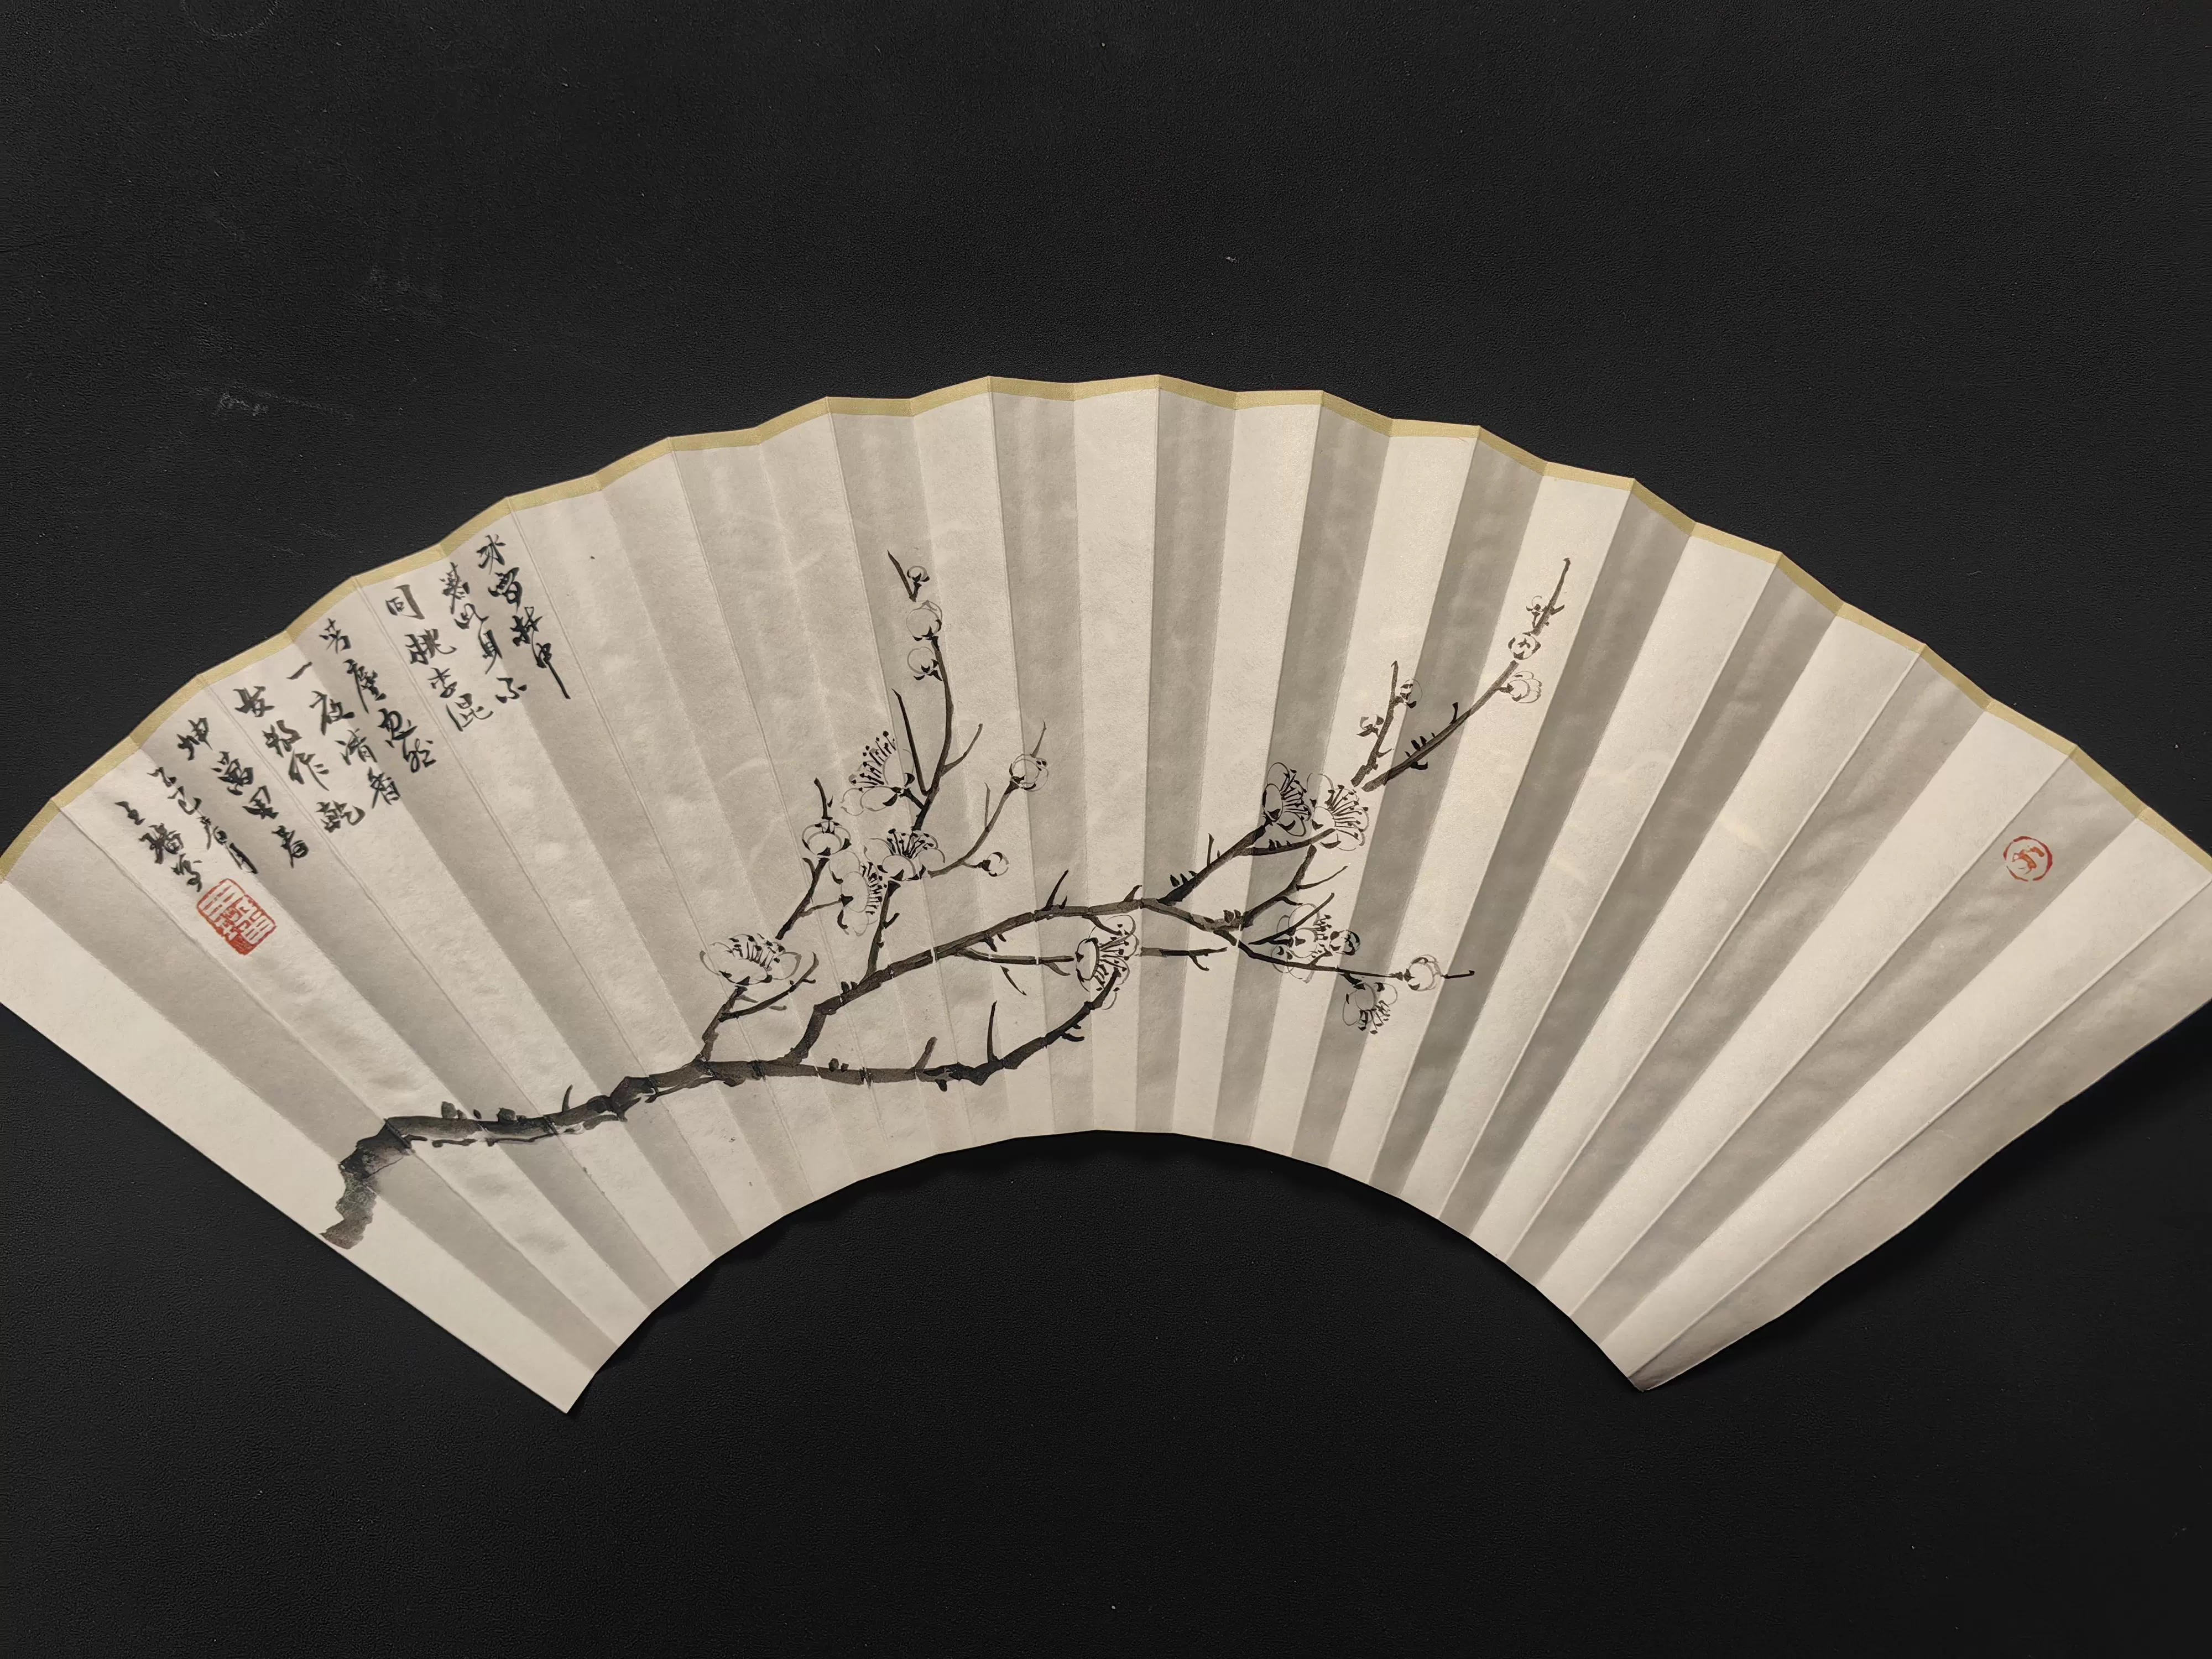 冰雪林中
著此身不
同桃李混
芳塵忽然
一夜清香
发散作乾
坤萬里春
乙巳春月
王 写